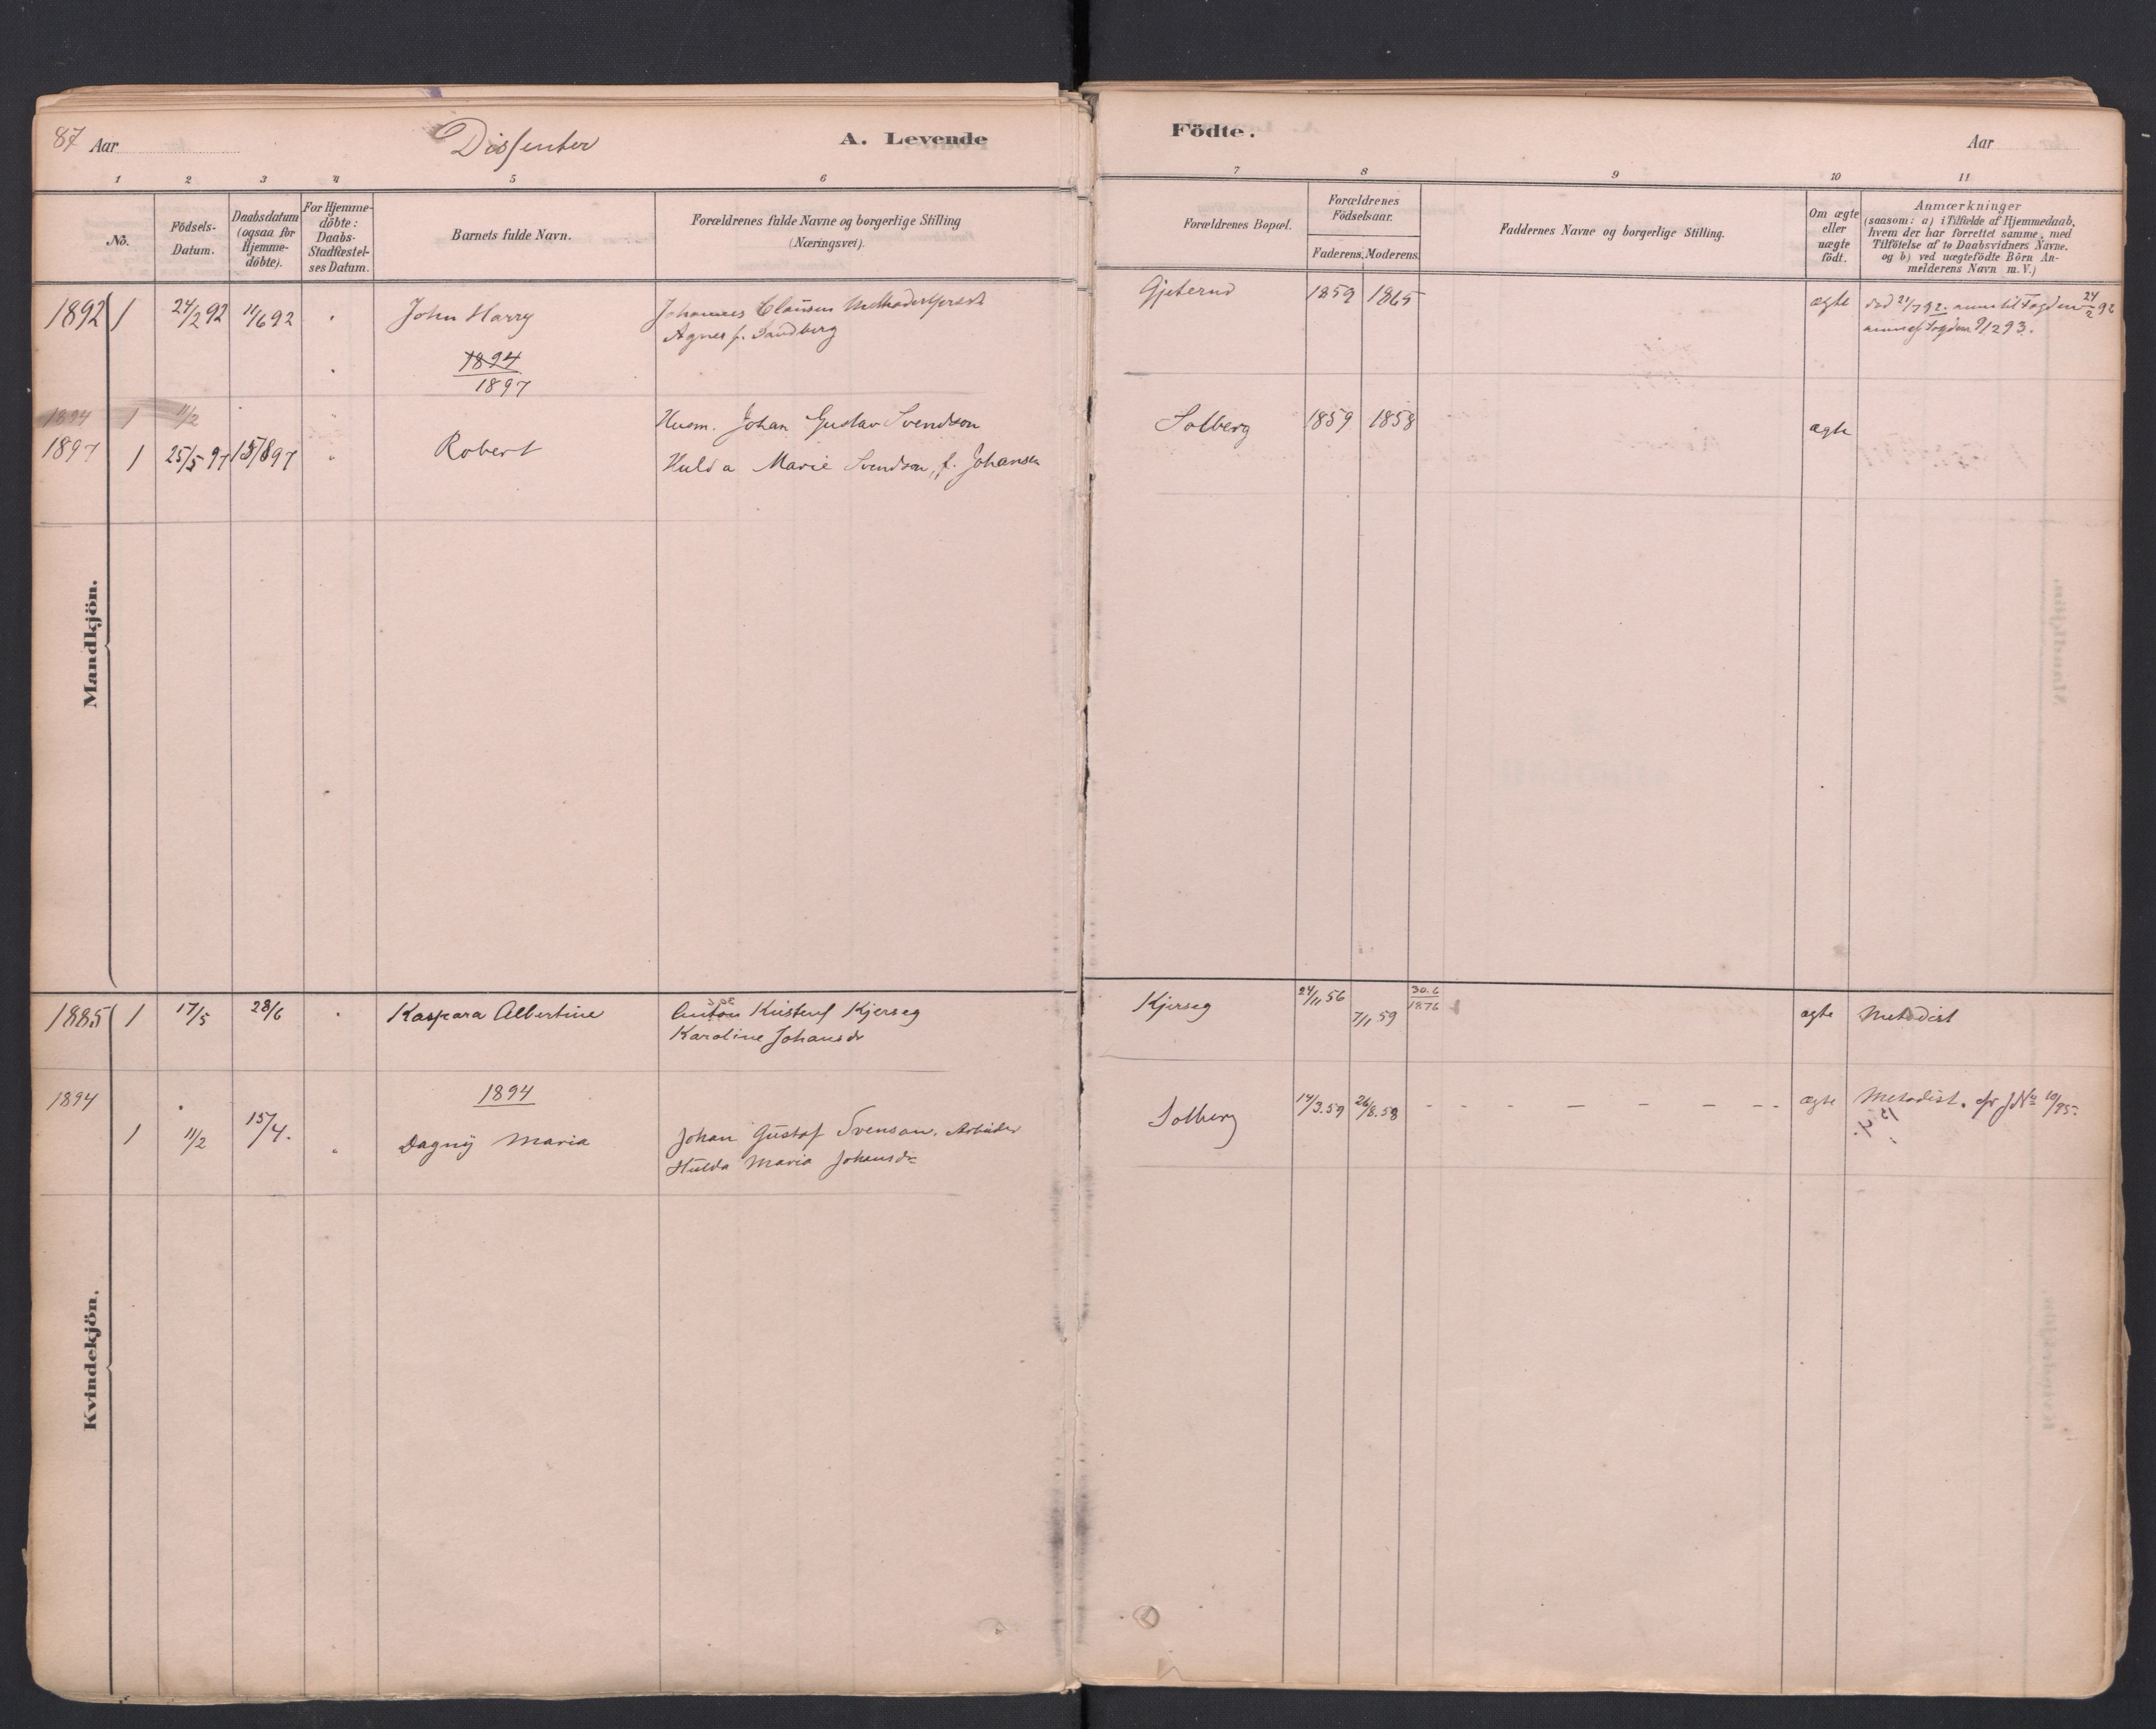 87 Aar Dissenter A. Levende Födte. Aar
1 2 3 4 5 6 7 8 9 10 11
No.
Födsels-
Datum.
Daabsdatum
(ogsaa for
Hjemme-
döbte).
For Hjemme-
döbte:
Daabs-
Stadfæstel-
ses Datum.
Barnets fulde Navn.
Forældrenes fulde Navne og borgerlige Stilling
(Næringsvei).
Forældrenes Bopæl.
Forældrenes
Födselsaar.
Faderens. Moderens.
Faddernes Navne og borgerlige Stilling.
Om ægte
eller
uægte
födt.
Anmærkninger
(saasom: a) i Tilfælde af Hjemmedaab,
hvem der har forrettet samme, med
Tilföielse af to Daabsvidners Navne.
og b) ved uægtefödte Börn An-
melderens Navn m. V.)
Mandkjön.
1892 1 24/2 92 11/6 92 John Harry Johannes Clausen
Agnes f. Sandberg
Gjeterud 1859 1865 ægte död 21/7 92. anm til Fogden 24/2 92
Fogden 9/1293.
1894
1897
1894 1 11/2
1897 1 25/5 97 15/8 97 Robert Husm. Johan Gustav Svendson
Hulda Marie Svendson, f. Johansen
Solberg 1859 1858 ægte
Kvindekjön.
1885 1 17/5 28/6 Kaspara Albertine Anton Kristenf Kjerseg
Karoline Johansdr
Kjerseg 24/11 56 7/1 59 30.6/1876 ægte Metodist
1894
1894 1 11/2 15/4. Dagny Maria Johan Gustaf Svenson. Arbeider
Hulda Maria Johansdr
Solberg 14/3.59 26/8.58 - - - - - - - - ægte Metodist. cfr J No 10/95